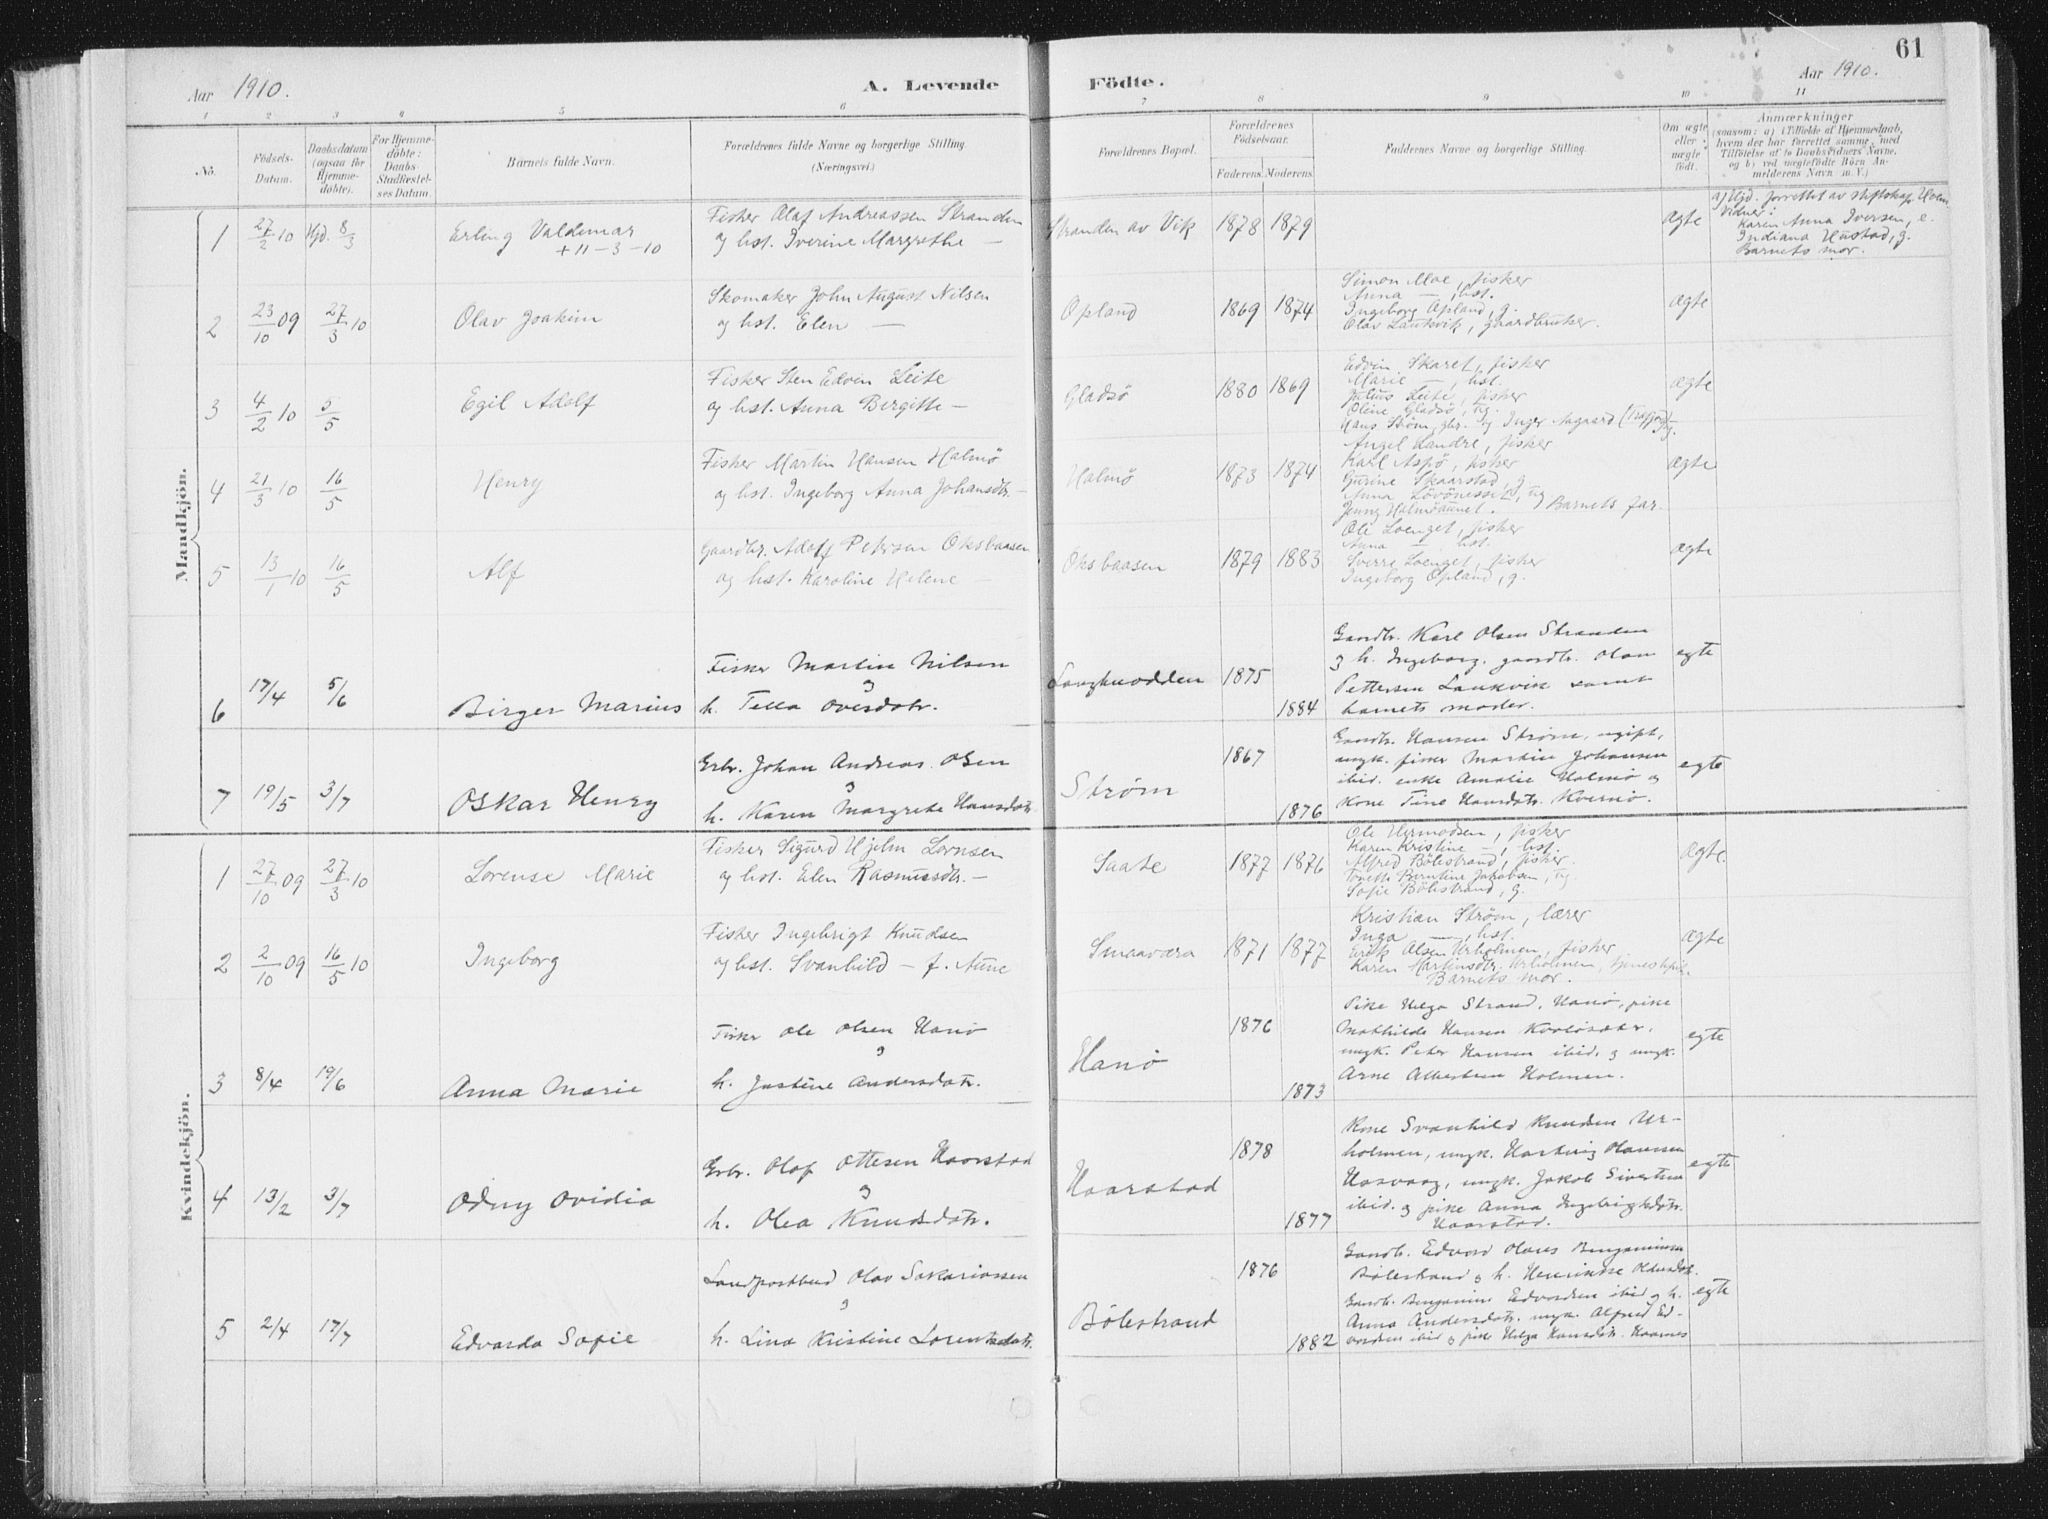 61
Aar 1910.
A. Levende Födte.
Aar 1910.
1 2 3 4 5 6 7 8 9 10 11
No.
Födsels-
Datum.
Daabsdatum
(ogsaa for
Hjemme-
döbte).
For Hjemme-
döbte:
Daabs-
Stadfæstel-
ses Datum.
Barnets fulde Navn.
Forældrenes fulde Navne og borgerlige Stilling.
(Næringsvei.)
Forældrenes Bopæl.
Forældrenes
Födselsaar.
Faderens. Moderens.
Faddernes Navne og borgerlige Stilling.
Om ægte
eller
uægte
födt.
Anmærkninger
(saasom: a) i Tilfælde af Hjemmedaab,
hvem der har forrettet samme, med
Tilföielse af to Daabsvidners Navne,
og b) ved uægtefödte Börn An-
melderens Navn m. V.)
Mandkjön.
1 27/2 10 Hjd. 8/3 Erling Valdemar
+ 11-3-10
Fisker Olaf Andreassen Stranden
og hst. Iverine Margrethe —
Stranden av Vik 1878 1879 ægte
a) Hjd. forrettet av
Vidner:
Karen Anna Iversen, e.
Indiana Hustad, g.
Barnets mor.
2 23/10 09 27/3 10 Olav Joakim
Skomaker John August Nilsen
og hst. Elen —
Opland 1869 1874
Simon Moe, fisker
Anna — hst.
Ingeborg Opland, g.
Olav Laukvik, gaardbruker.
ægte
3 4/2 10 5/5 Egil Adolf
Fisker Sten Edvin Leite
og hst. Anna Bergitte —
Gladsö 1880 1869
Edvin Skaret, fisker
Marie — hst.
Julius Leite, fisker
Oline Gladsö, ug.
Hans Ström, gbr. og Inger Aagaard
ægte
4 21/3 10 16/5 Henry
Fisker Martin Hansen Halmö
og hst. Ingeborg Anna Johansdtr. —
Halmö 1873 1874
Angel Landre, fisker
Karl Aspö, fisker
Gurine Skaarstad, g
Anna
Jenny Halmöaunet. Barnets far.
ægte
5 13/1 10 16/5 Alf
Gaardbr. Adolf Petersen Oksbaasen
og hst. Karoline Helene —
Oksbaasen 1879 1883
Ole Loenget, fisker
Anna — hst.
Sverre Loenget, fisker
Ingeborg Opland, g.
ægte
6 17/4 5/6 Birger Marius
Fisker Martin Nilsen
og
h. Tella Ovesdatr.
Langknodden 1875
1884
Gaardbr. Karl Olsen Stranden
og h. Ingeborg, gaardbr. Olam
Pettersen Laukvik samt
barnets moder.
egte
7 19/5 3/7 Oskar Henry
Grbr. Johan Andreas Olsen
og
h. Karen Margrete Hansdatr.
Strøm 1867
1876
Gaardbr. Hansen Strøm, ugift,
ungk. fisker Martin Johansen
ibid. enke Amalie Halmö og
Kone Tine Hansdatr. Kvernö.
egte
Kvindekjön.
1 27/10 09 27/3 10 Lorense Marie
Fisker Sigurd Hjelm Lornsen
og hst. Elen Rasmusdtr. —
Saate 1877 1876
Ole Hermodsen, fisker
Karen Kristine —, hst.
Alfred Bölestrand, fisker.
Berntine Jakobsen, ug
Sofie Bölestrand, g.
ægte.
2 2/10 09 16/5 10 Ingeborg
Fisker Ingebrigt Knudsen
og hst. Svanhild — f. Aune
Smaaværa 1871 1877
Kristian Ström, lærer
Inga — hst.
Erik Olsen Urholmen, fisker
Karen Martinsdtr. Urholmen, tjenestepik.
Barnets mor.
ægte
3 8/4 19/6 Anna Marie
Fisker Ole Olsen Hanö
og
h. Justine Andersdatr.
Hanö 1876
1873
Pike Helga Strand, Hanö, pike
Mathilde Hansen
ungk. Peter Hansen ibid. og ungk.
Arne Albertsen Holmen.
egte
4 13/2 3/7 Odny Ovidia
Grbr. Olaf Ottesen Haarstad
og
h. Olea Knudsdatr.
Haarstad 1878
1877
Kone Svanhild Knudsen Ur-
holmen, ungk. Hartvig Hansen
Hasvaag, ungk. Jakob Sivertsen
ibid. og pike Anna Ingebrigtsdatr.
Haarstad.
egte
5 2/4 17/7 Edvarda Sofie
Landpostbud Olav Sakariassen
og
h. Lina Kristine Lorentsdatr.
Bölestrand 1876
1882
Gaardbr. Edvard Olaus Benjaminsen
Bölestrand og h. Henrikke Oldusdatr.
Gaardbr. Benjamin Edvardsen ibid og h.
Anna Andersdatr. ungk. Alfred Ed-
vardsen ibid og pike Helga Hansdatr. Haarnes
egte